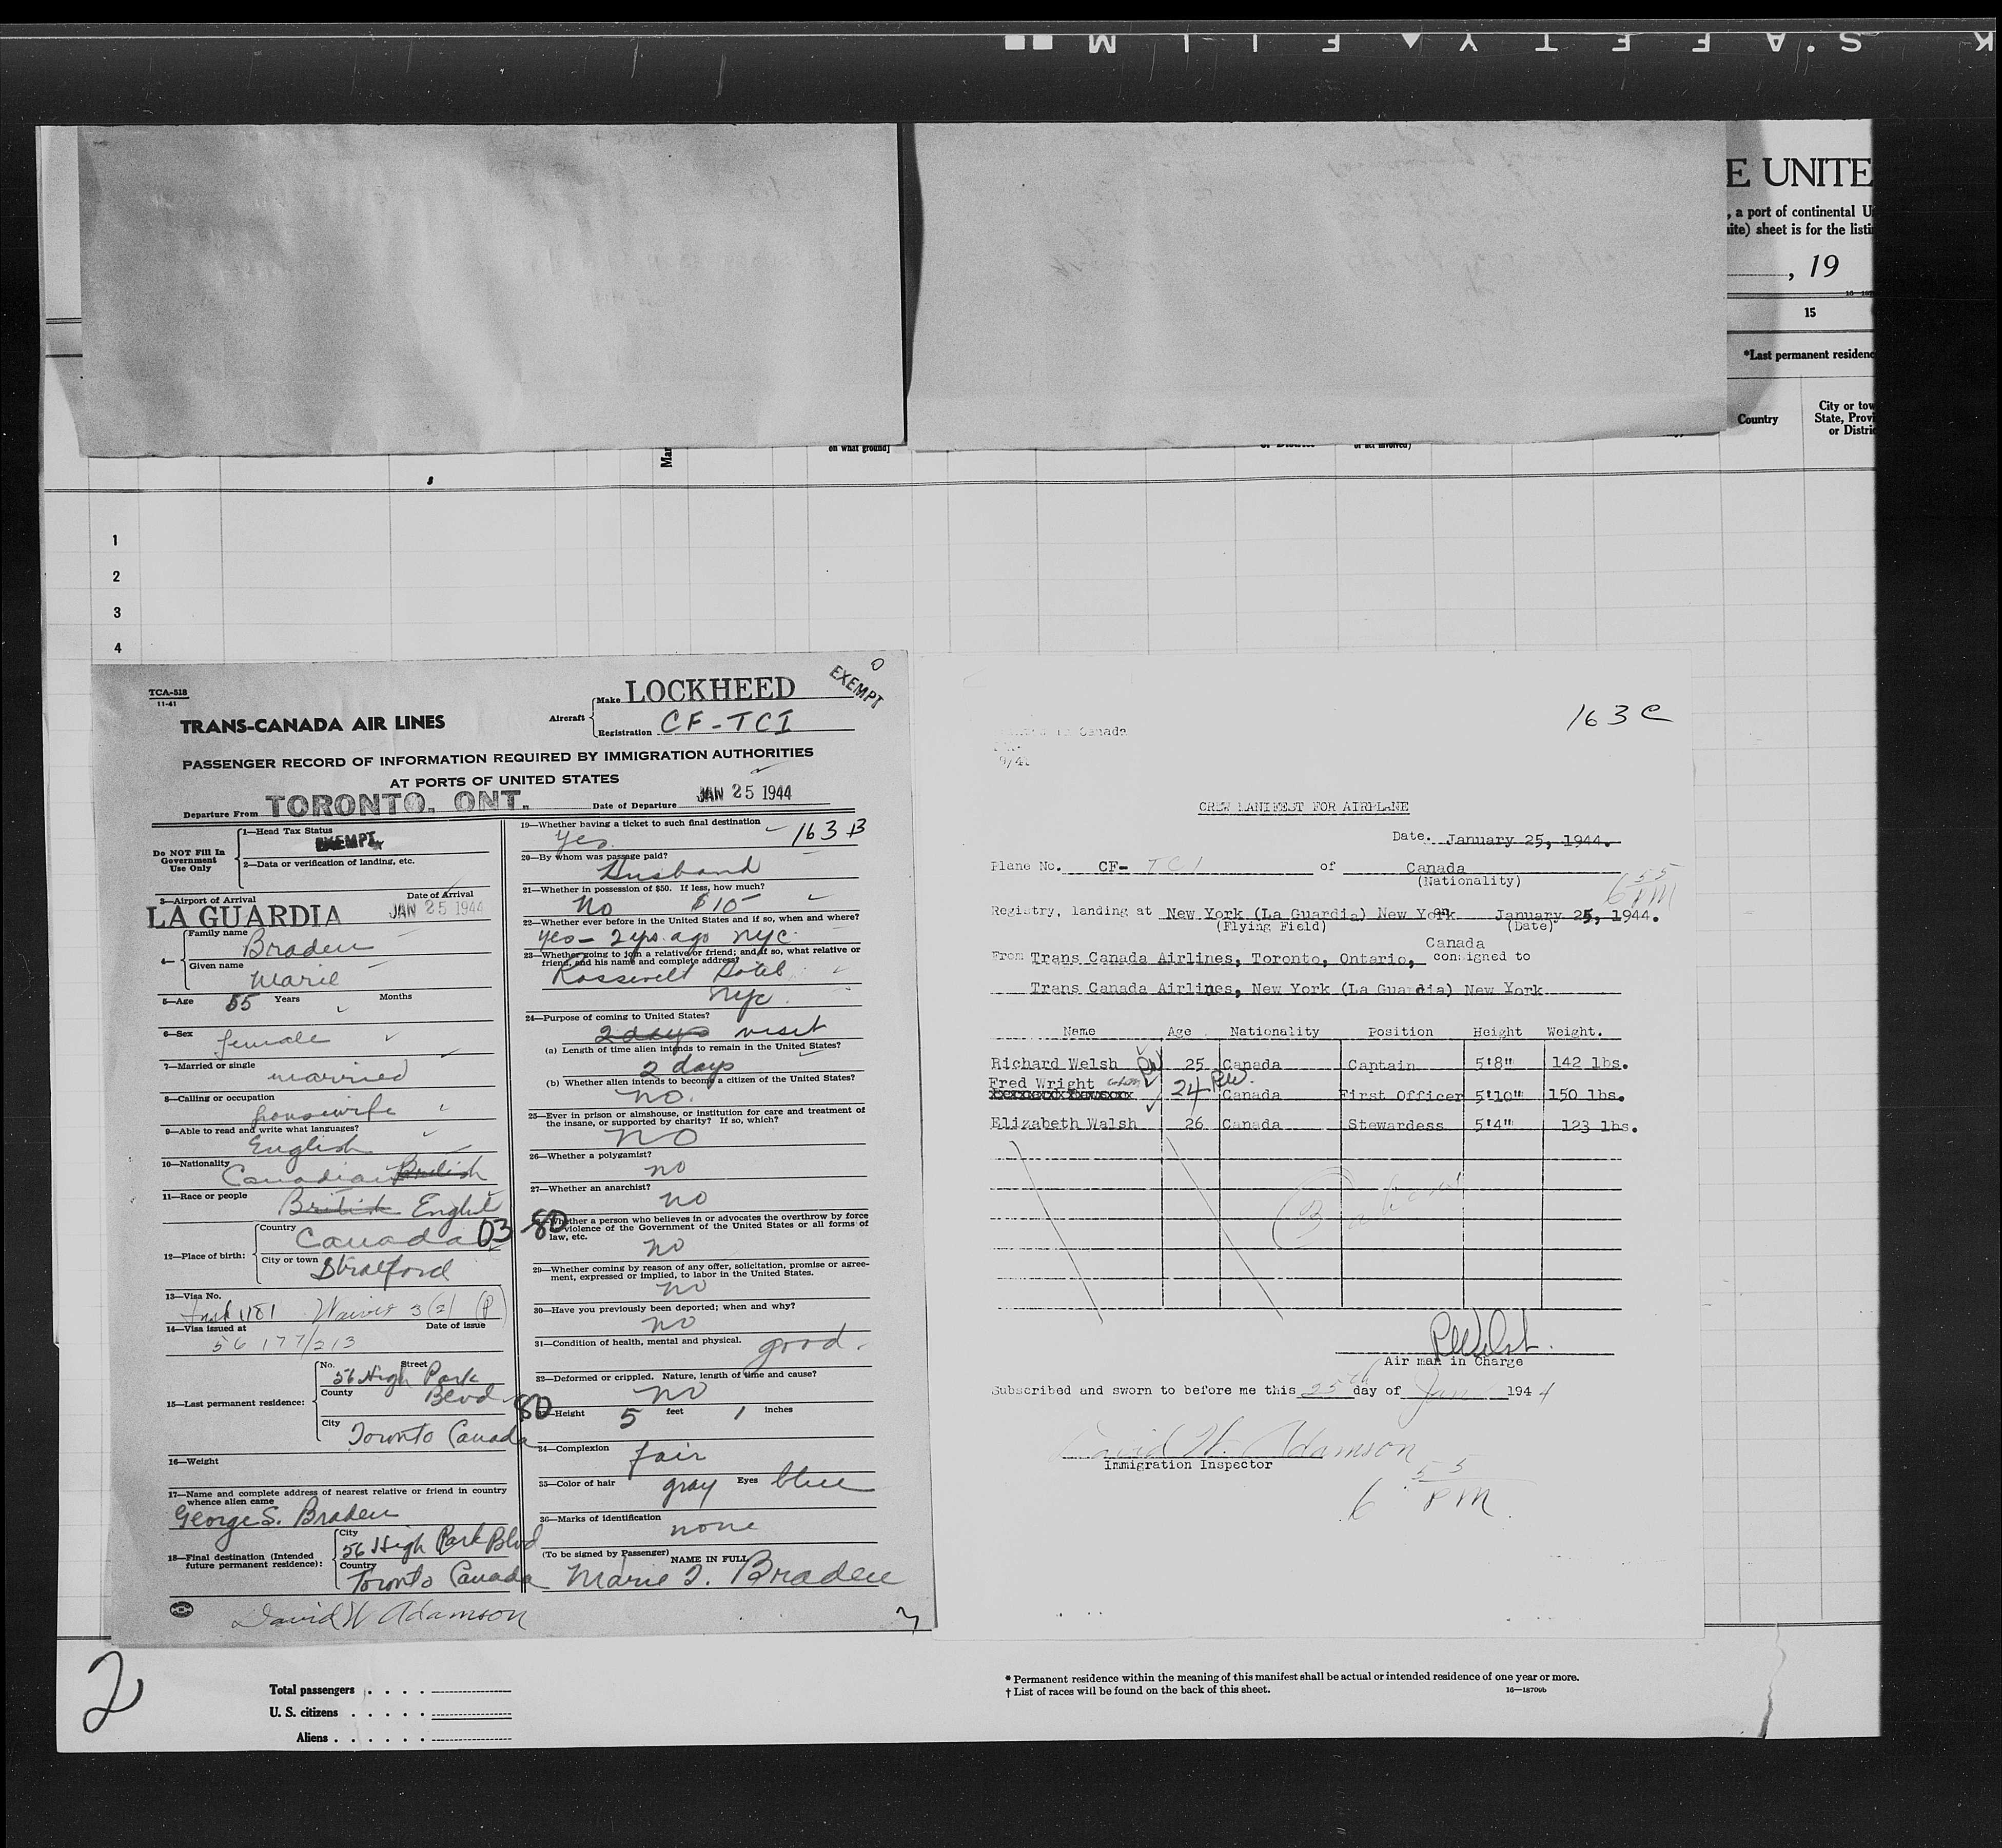 K S.A F E T Y ▲ F I L M
E UNITE
, a port of continental U
ite) sheet is for the listi
, 19
15
*Last permanent residenc
Country
City or tow
State, Provi
or Distric
Mar
on what ground]
or act involved)
8
1
2
3
4
TCA-518
11-41
TRANS-CANADA AIR LINES
Aircraft
Make LOCKHEED
Registration CF-TCI
EXEMPT
0
PASSENGER RECORD OF INFORMATION REQUIRED BY IMMIGRATION AUTHORITIES
AT PORTS OF UNITED STATES
Departure From TORONTO. ONT. Date of Departure JAN 25 1944
Do NOT Fill In
Government
Use Only
1—Head Tax Status
EXEMPT
2—Data or verification of landing, etc.
3—Airport of Arrival Date of Arrival
LA GUARDIA JAN 25 1944
4—
Family name
Braden
Given name
Marie
5—Age 55 Years Months
6—Sex
female
7—Married or single
married
8—Calling or occupation
housewife
9—Able to read and write what languages?
English
10—Nationality
Canadian British
11—Race or people
British English
12—Place of birth:
Country
Canada 03
City or town
Stratford
13—Visa No.
1181 Waiver 3(2) (P)
14—Visa issued at Date of issue
56 177/213
15—Last permanent residence:
No. Street
56 High Park
County
Blvd
City
Toronto Canada
16—Weight
17—Name and complete address of nearest relative or friend in country
whence alien came
George S. Braden
18—Final destination (Intended
future permanent residence):
City
56 High Park Blvd
Country
Toronto Canada
David W Adamson
19—Whether having a ticket to such final destination
yes. 163 B
20—By whom was passage paid?
Husband
21—Whether in possession of $50. If less, how much?
No $10-
22—Whether ever before in the United States and if so, when and where?
yes - 2 yrs. ago nyc.
23—Whether going to join a relative or friend; and if so, what relative or
friend, and his name and complete address?
Roosevelt Hotel
nyc.
24—Purpose of coming to United States?
2 days visit
(a) Length of time alien intends to remain in the United States?
2 days
(b) Whether alien intends to become a citizen of the United States?
no.
25—Ever in prison or almshouse, or institution for care and treatment of
the insane, or supported by charity? If so, which?
no
26—Whether a polygamist?
no
27—Whether an anarchist?
no
80
Whether a person who believes in or advocates the overthrow by force
or violence of the Government of the United States or all forms of
law, etc.
no
29—Whether coming by reason of any offer, solicitation, promise or agree-
ment, expressed or implied, to labor in the United States.
no
30—Have you previously been deported; when and why?
no
31—Condition of health, mental and physical. good.
32—Deformed or crippled. Nature, length of time and cause?
no
80
33—Height 5 feet 1 inches
34—Complexion
fair
35—Color of hair gray Eyes blue
36—Marks of identification
none
(To be signed by Passenger) NAME IN FULL
Marie I. Braden
163 C
Canada
9/41
CREW MANIFEST FOR AIRPLANE
Date. January 25, 1944.
Plane No. CF- TCI of Canada
(Nationality)
6 55 PM
Registry, landing at New York (La Guardia) New York on January 25, 1944.
(Flying Field) (Date)
From Trans Canada Airlines, Toronto, Ontario, Canada consigned to
Trans Canada Airlines, New York (La Guardia) New York
Name Age Nationality Position Height Weight.
Richard Welsh RW 25 Canada Captain 5'8" 142 lbs.
Fred Wright 24 RW. Canada First Officer 5'10" 150 lbs.
Elizabeth Walsh 26 Canada Stewardess 5'4" 123 lbs.
RWelsh.
Air man in Charge
Subscribed and sworn to before me this 25th day of Jan 1944
David W. Adamson
Immigration Inspector
6 55 PM
2
Total passengers . . . .
U. S. citizens . . . . .
Aliens . . . . . .
* Permanent residence within the meaning of this manifest shall be actual or intended residence of one year or more.
† List of races will be found on the back of this sheet.
16—18709b